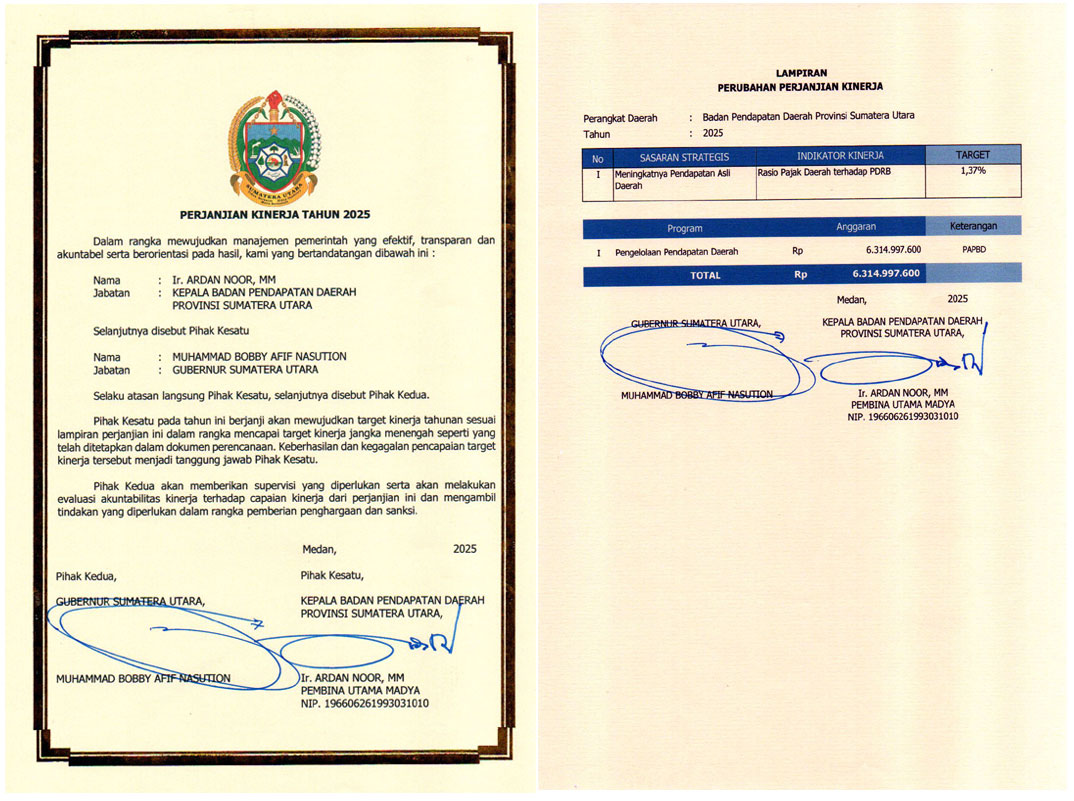 SUMATERA UTARA
PERJANJIAN KINERJA TAHUN 2025
Dalam rangka mewujudkan manajemen pemerintah yang efektif, transparan dan
akuntabel serta berorientasi pada hasil, kami yang bertandatangan dibawah ini :
Nama : Ir. ARDAN NOOR, MM
Jabatan : KEPALA BADAN PENDAPATAN DAERAH
PROVINSI SUMATERA UTARA
Selanjutnya disebut Pihak Kesatu
Nama : MUHAMMAD BOBBY AFIF NASUTION
Jabatan : GUBERNUR SUMATERA UTARA
Selaku atasan langsung Pihak Kesatu, selanjutnya disebut Pihak Kedua.
Pihak Kesatu pada tahun ini berjanji akan mewujudkan target kinerja tahunan sesuai
lampiran perjanjian ini dalam rangka mencapai target kinerja jangka menengah seperti yang
telah ditetapkan dalam dokumen perencanaan. Keberhasilan dan kegagalan pencapaian target
kinerja tersebut menjadi tanggung jawab Pihak Kesatu.
Pihak Kedua akan memberikan supervisi yang diperlukan serta akan melakukan
evaluasi akuntabilitas kinerja terhadap capaian kinerja dari perjanjian ini dan mengambil
tindakan yang diperlukan dalam rangka pemberian penghargaan dan sanksi.
Medan, 2025
Pihak Kedua, Pihak Kesatu,
GUBERNUR SUMATERA UTARA, KEPALA BADAN PENDAPATAN DAERAH
PROVINSI SUMATERA UTARA,
MUHAMMAD BOBBY AFIF NASUTION Ir. ARDAN NOOR, MM
PEMBINA UTAMA MADYA
NIP. 196606261993031010
LAMPIRAN
PERUBAHAN PERJANJIAN KINERJA
Perangkat Daerah : Badan Pendapatan Daerah Provinsi Sumatera Utara
Tahun : 2025
No SASARAN STRATEGIS INDIKATOR KINERJA TARGET
I Meningkatnya Pendapatan Asli Rasio Pajak Daerah terhadap PDRB 1,37%
Daerah
Program Anggaran Keterangan
I Pengelolaan Pendapatan Daerah Rp 6.314.997.600 PAPBD
TOTAL Rp 6.314.997.600
Medan, 2025
GUBERNUR SUMATERA UTARA, KEPALA BADAN PENDAPATAN DAERAH
PROVINSI SUMATERA UTARA,
MUHAMMAD BOBBY AFIF NASUTION Ir. ARDAN NOOR, MM
PEMBINA UTAMA MADYA
NIP. 196606261993031010